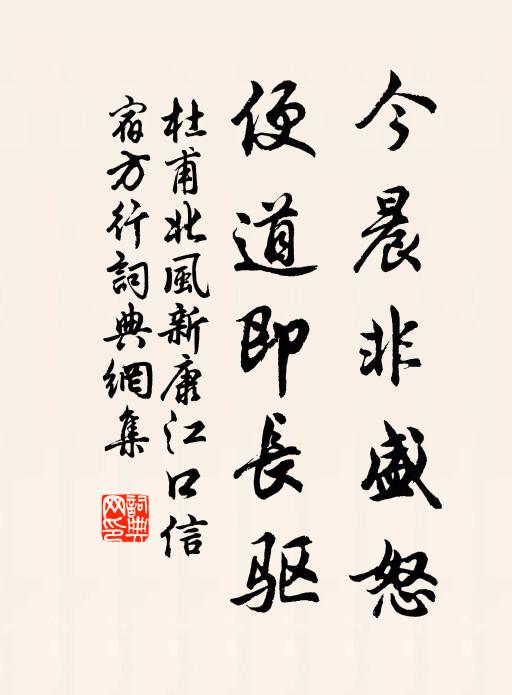 今晨非盛怒
便道即長驱
杜甫北風新康江口信
宿方行詞典網集
詞典
网印